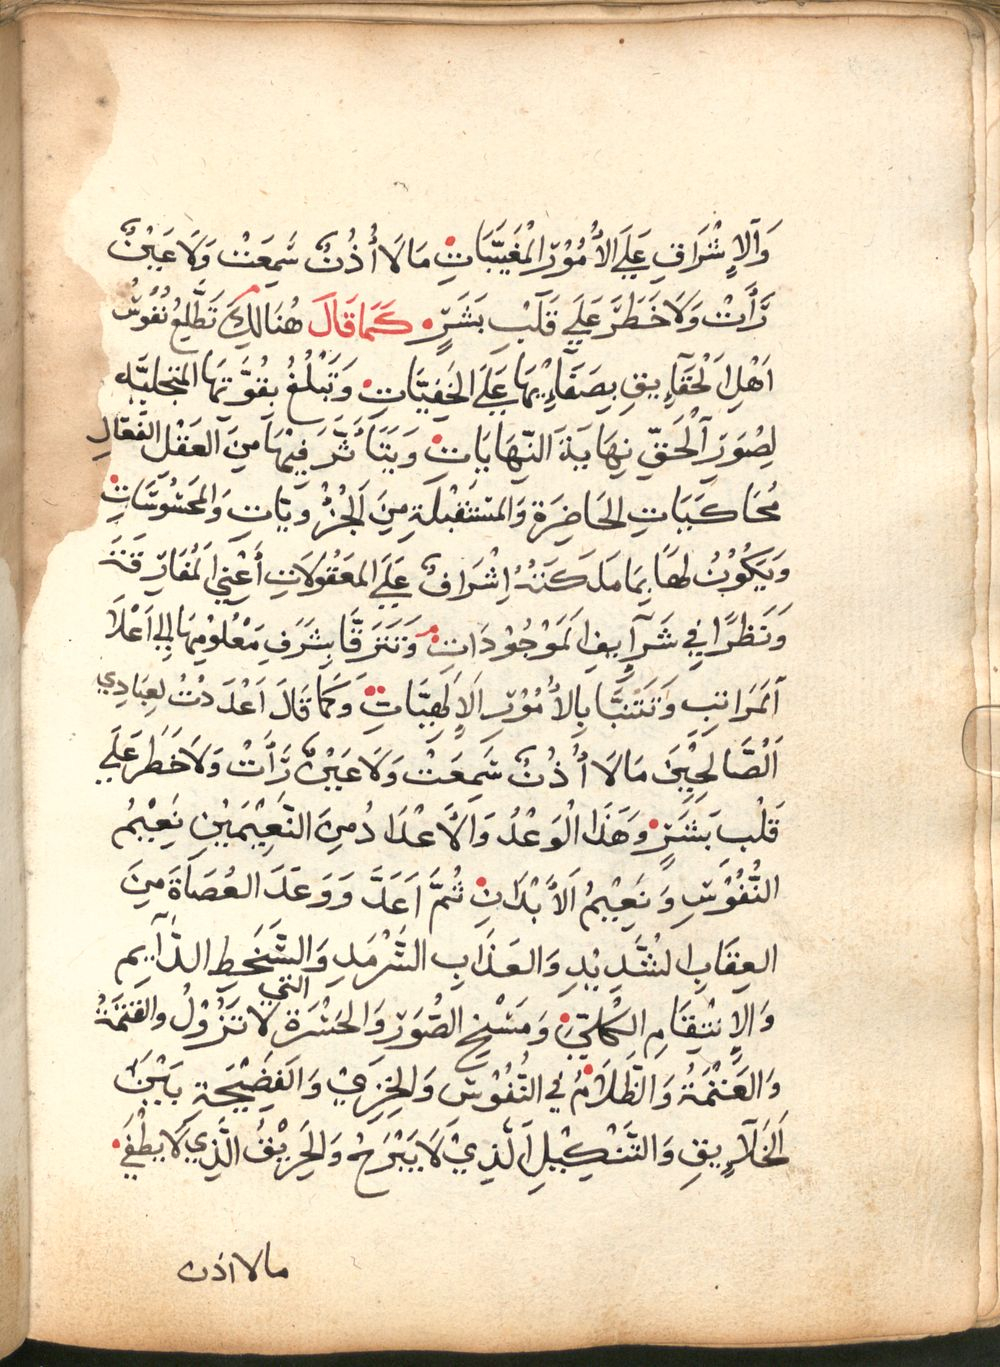 وَالإِشْرَافِ عَلَى الأُمُوْرِ الْمُغَيَّبَاتِ مَا لَا أُذُنٌ سَمِعَتْ وَلَا عَيْنٌ
رَأَتْ وَلَا خَطَرَ عَلَى قَلْبِ بَشَرٍ كَمَا قَالَ هُنَالِكَ تَطَّلِعُ نُفُوْسُ
اَهْلِ الْحَقَآئِقِ بِصَفَآئِهَا عَلَى الخَفِيَّاتِ وَتَبْلُغُ بِقُوَّتِهَا المتجليَّه
لِصُوَرِ الْحَقِّ نِهَايَةَ النِّهَايَاتِ وَيَتَأَثَّرَ فِيْهَا مِنَ العَقْلِ الفَعَّالِ
مُحَاكَيَاتِ الحَاضِرَةِ وَالمسْتَقْبَلَةِ مِنَ الجُزْوِيَاتِ وَالمَحْسُوْسَاتِ
وَيَكُوْنُ لَهَا بِمَا مَلَكَتْهُ إِشْرَافٌ عَلَى المَعْقُولَاتِ أَعْنِي الْمُفَارِقَةَ
وَنَظَرًا فِي شَرَآيِفِ الْمَوْجُوْدَاتِ وَتَتَرَقَّا بِشَرَفِ مَعْلُوْمِهَا إِلَى اَعْلَا
المَرَاتِبِ وَتَتَنَبَّا بِالأُمُوْرِ الإِلَهِيَّاتِ وَكَمَا قَالَ اَعْدَدْتُ لِعِبَادِي
الْصَّالِحِيْنَ مَا لَا أُذُنٌ سَمِعَتْ وَلَا عَيْنٌ رَأَتْ وَلَا خَطَرَ عَلَى
قَلْبِ بَشَرٍ وَهَذَا الْوَعْدُ وَالأَعْدَادُ مِنَ النَّعِيْمَيْنِ نَعِيْمُ
النُّفُوْسِ وَنَعِيْمُ الأَبْدَانِ ثُمَّ اَعَدَّ وَوَعَدَ العُصَاةَ مِنَ
العِقَابِ الشَّدِيْدِ وَالعَذَابِ السَّرْمَدِ وَالسَّخَطِ الدَّآيِمِ
وَالإِنْتِقَامِ الكُلِّيِّ وَمَسْخِ الصُّوَرِ وَالحَسْرَةِ التي لَا تَزُوْلُ وَالقَتَمَةُ
وَالعَتَمَةُ وَالظَّلَامُ فِي النُّفُوْسِ وَالخِزِيْ وَالفَضِيْحَةِ بَيْنَ
الخَلَآئِقِ وَالتَّنْكِيْلِ الَّذِيْ لَا يَبْرَحُ وَالحَرِيْقُ الَّذِي لَا يطْفَى
مالا اذن